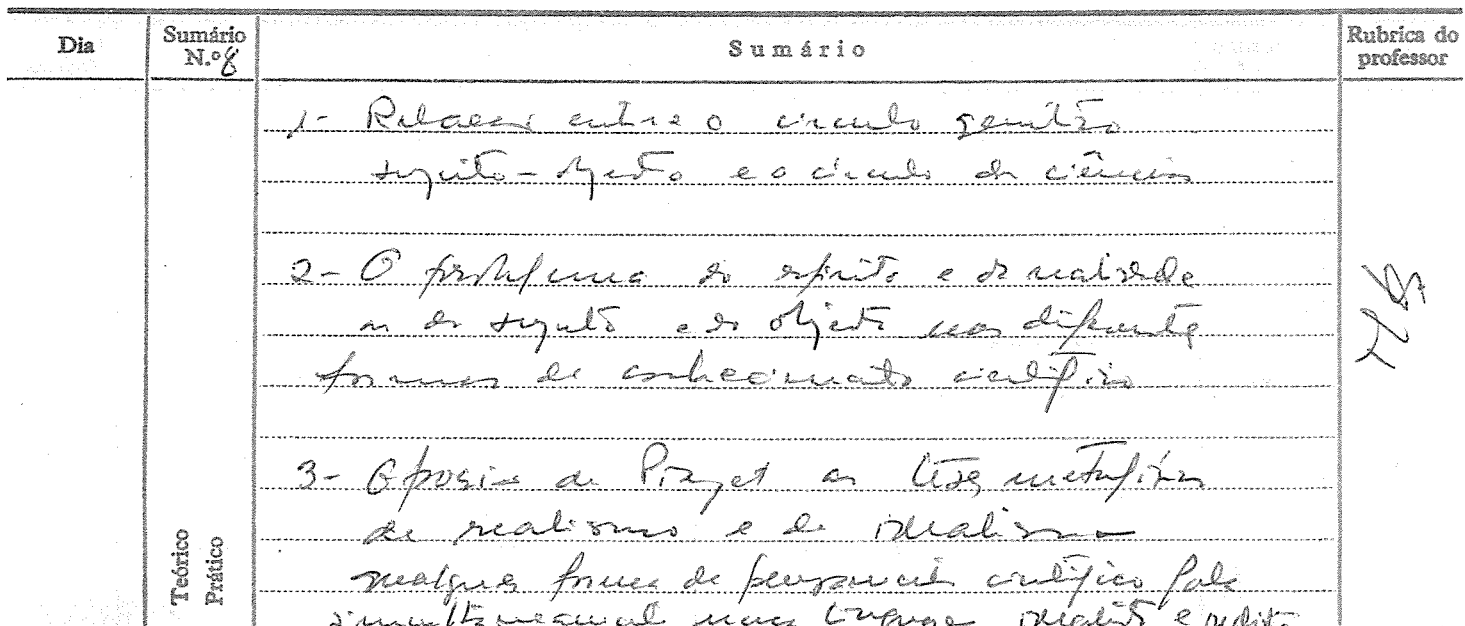 Dia
Sumário N.º 8
Sumário
Rubrica do professor
1- Relação entre o circulo genético
sujeito-objecto e o circulo da ciências
2- O problema do espirito e da realidade
ou do sujeito e do objecto nas diferentes
formas de conhecimento cientifico
3- Oposição de Piaget as teses metafísicas
de realismo e de idealismo
qualquer forma de pensamento cientifico fala
simultaneamente uma linguagem idealista e realista
Teórico
Prático